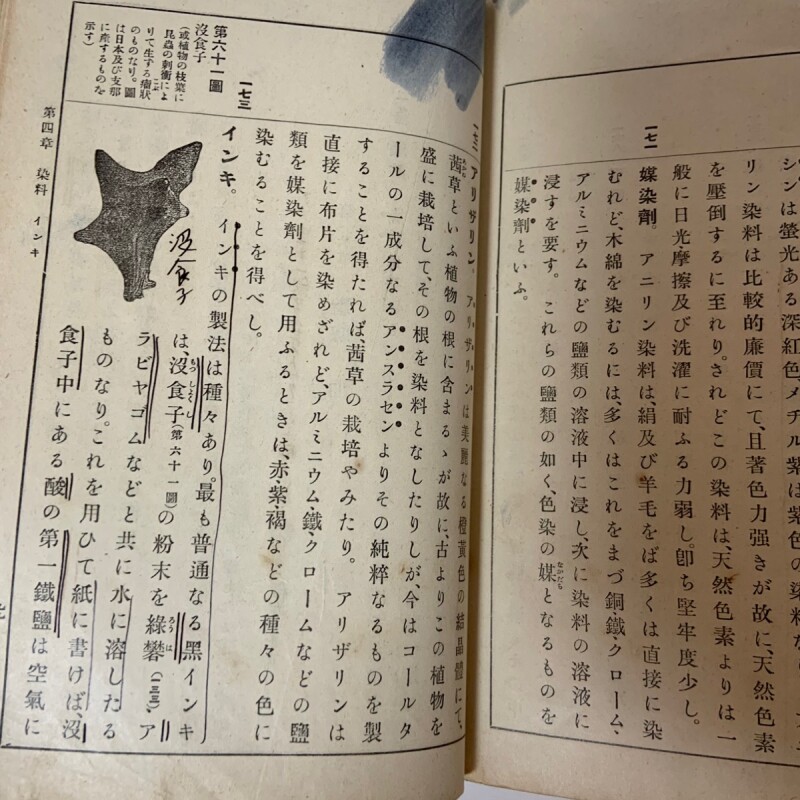 シンは螢光ある深紅色、メチル紫は紫色の染料なり。
リン染料は比較的廉價にて、且著色力强きが故に、天然色素
を壓倒するに至れり。されどこの染料は、天然色素よりは一
般に日光・摩擦及び洗濯に耐ふる力弱し。卽ち堅牢度少し。
一七一
媒染劑。アニリン染料は、絹及び羊毛をば多くは直接に染
むれど、木綿を染むるには、多くはこれをまづ銅・鐵・クローム、
アルミニウムなどの鹽類の溶液中に浸し、次に染料の溶液に
浸すを要す。これらの鹽類の如く、色染の媒となるものを
なかだち
媒染劑といふ。
一七二
アリザリン。アリザリンは美麗なる橙黃色の結晶體にて、
茜草といふ植物の根に含まるゝが故に、古よりこの植物を
あかね
盛に栽培して、その根を染料となしたりしが、今はコールタ
ールの一成分なるアンスラセンよりその純粹なるものを製
することを得たれば、茜草の栽培やみたり。アリザリンは
直接に布片を染めざれど、アルミニウム・鐵・クロームなどの鹽
類を媒染劑として用ふるときは、赤・紫・褐などの種々の色に
染むることを得べし。
一七三
インキ。インキの製法は種々あり。最も普通なる黑インキ
は、沒食子(第六十一圖)の粉末を綠礬(一三三)、ア
もつしよくし
ろうは
ラビヤゴムなどと共に水に溶したる
ものなり。これを用ひて紙に書けば、沒
食子中にある酸の第一鐵鹽は空氣に
第六十一圖
沒食子
(或植物の枝葉に
昆蟲の刺衝によ
りて生ずる瘤狀
こぶ
のものなり。圖
は日本及び支那
に產するものを
示す)
沒食子
第四章 染料 インキ